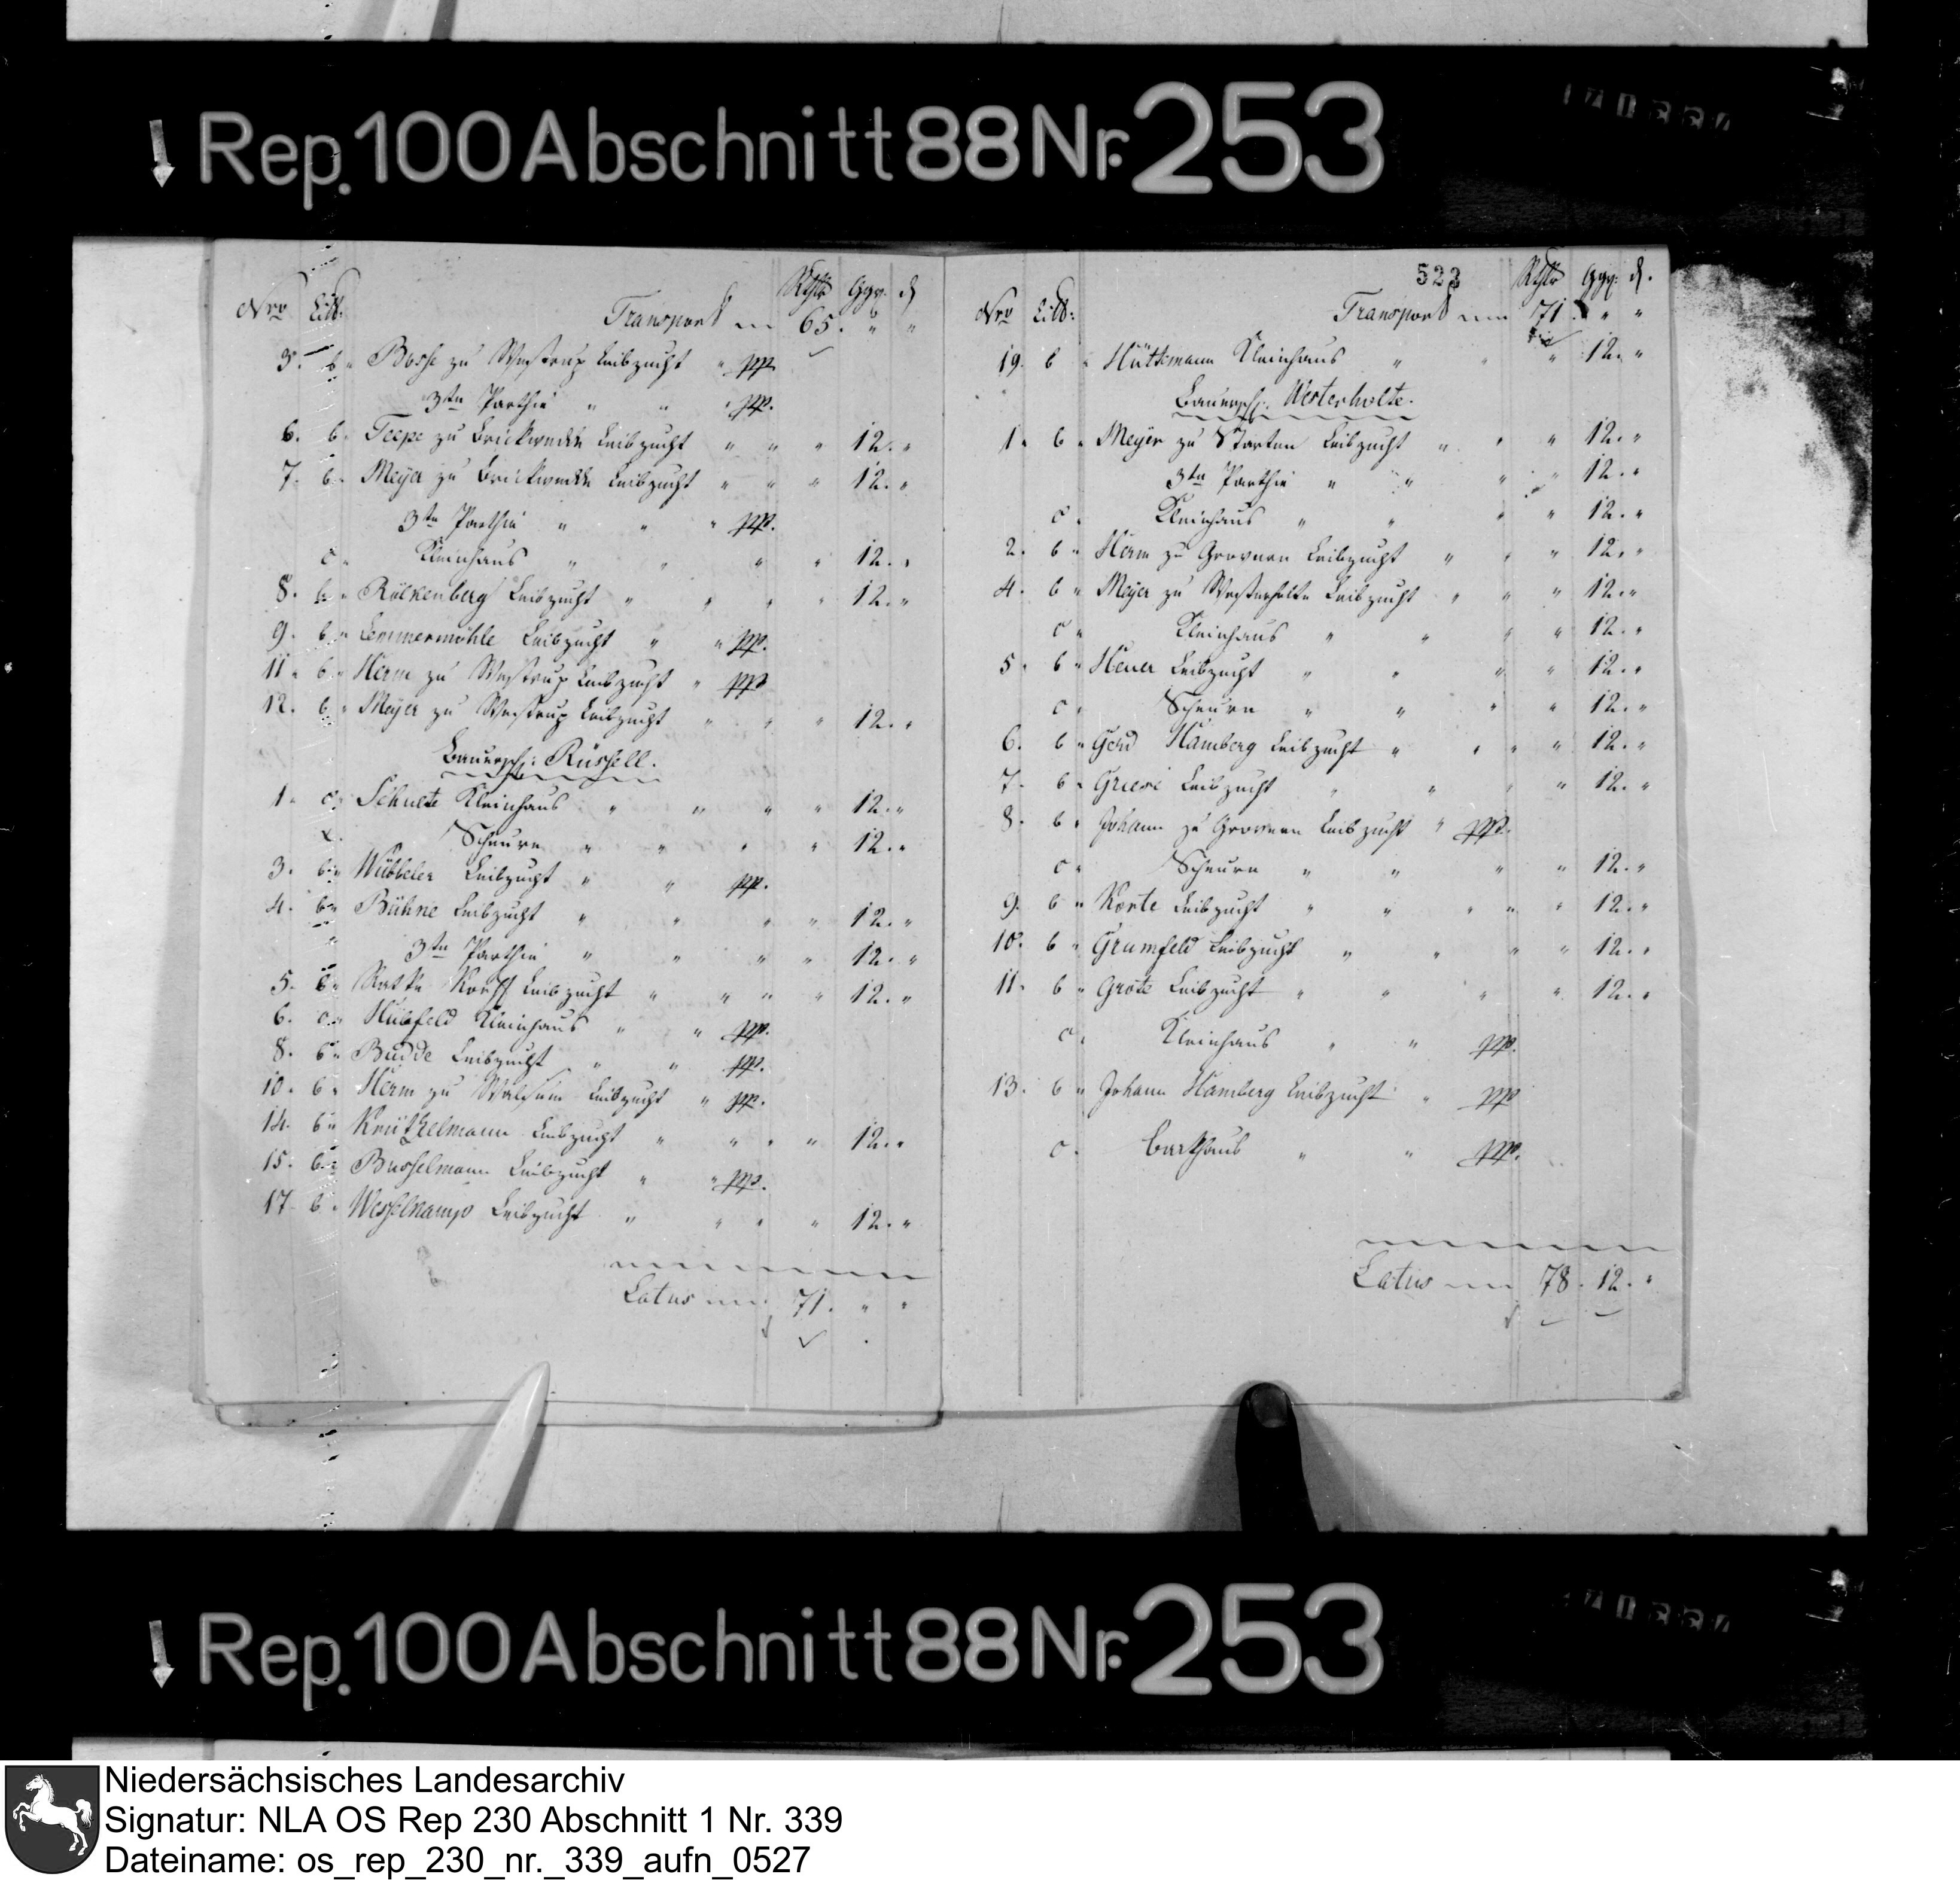 Rep. 100 Abschnitt 88 Nr. 253
Nro Litt: Rthlr Ggr. ₰
Transport 65. " "
3. b " Bosse zu Wastrup Leibzucht " pp.
3te Parthie " " " pp.
6. b. Teepe zu Brickwedde Leibzucht " " " 12. "
7. b. Meyer zu Brickwedde Leibzucht " " " 12. "
3te Parthie " " " pp.
c " Kleinhaus " " " " 12. "
8. b " Rölkenberg Leibzucht " " " " 12. "
9. b " Lemmermöhle Leibzucht " " pp.
11 " b " Herm zu Westrup Leibzucht " pp
12. b " Meyer zu Westrup Leibzucht " " " 12. "
Bauersch: Rüssell.
1. c. Schulte Kleinhaus " " " " 12. "
Scheure " " " " 12. "
3. b " Wübbeler Leibzucht " " pp.
4. b " Bühne Leibzucht " " " " 12. "
3te Parthie " " " " 12. "
5. b " Korff Leibzucht " " " " 12. "
6. c " Hülsfeld Kleinhaus " " pp.
8. b " Budde Leibzucht " " pp.
10. b " Herm zu Walsum Leibzucht " pp.
14. b " Leibzucht " " " " 12. "
15. b " Busselmann Leibzucht " " pp.
17. b " Wesselkamp Leibzucht " " " " 12. "
Latus 71. " "
523
Nro Litt: Rthlr Ggr. ₰.
Transport 71. " "
19. b " Hüttemann Kleinhaus " " " 12. "
Bauersch: Westerholte.
1. b " Meyer zu Starten Leibzucht " " " 12. "
3te Parthie " " " " 12. "
c. Kleinhaus " " " " 12. "
2. b " Herm zu Grovern Leibzucht " " " 12. "
4. b " Meyer zu Westerholte Leibzucht " " " 12. "
c " Kleinhaus " " " " 12. "
5. b " Heuer Leibzucht " " " " 12. "
c. Scheure " " " " 12. "
6. b " Gerd Hamberg Leibzucht " " " " 12. "
7. b " Leibzucht " " " " 12. "
8. b " Johann zu Grovern Leibzucht " pp.
c " Scheure " " " " 12. "
9. b " Korte Leibzucht " " " " " 12. "
10. b " Grumfeld Leibzucht " " " " 12. "
11. b " Grote Leibzucht " " " " 12. "
c. Kleinhaus " " pp.
13. b " Johann Hamberg Leibzucht " pp
c. Backhaus " " pp.
Latus 78. 12. "
Rep. 100 Abschnitt 88 Nr. 253
Niedersächsisches Landesarchiv
Signatur: NLA OS Rep 230 Abschnitt 1 Nr. 339
Dateiname: os_rep_230_nr._339_aufn_0527